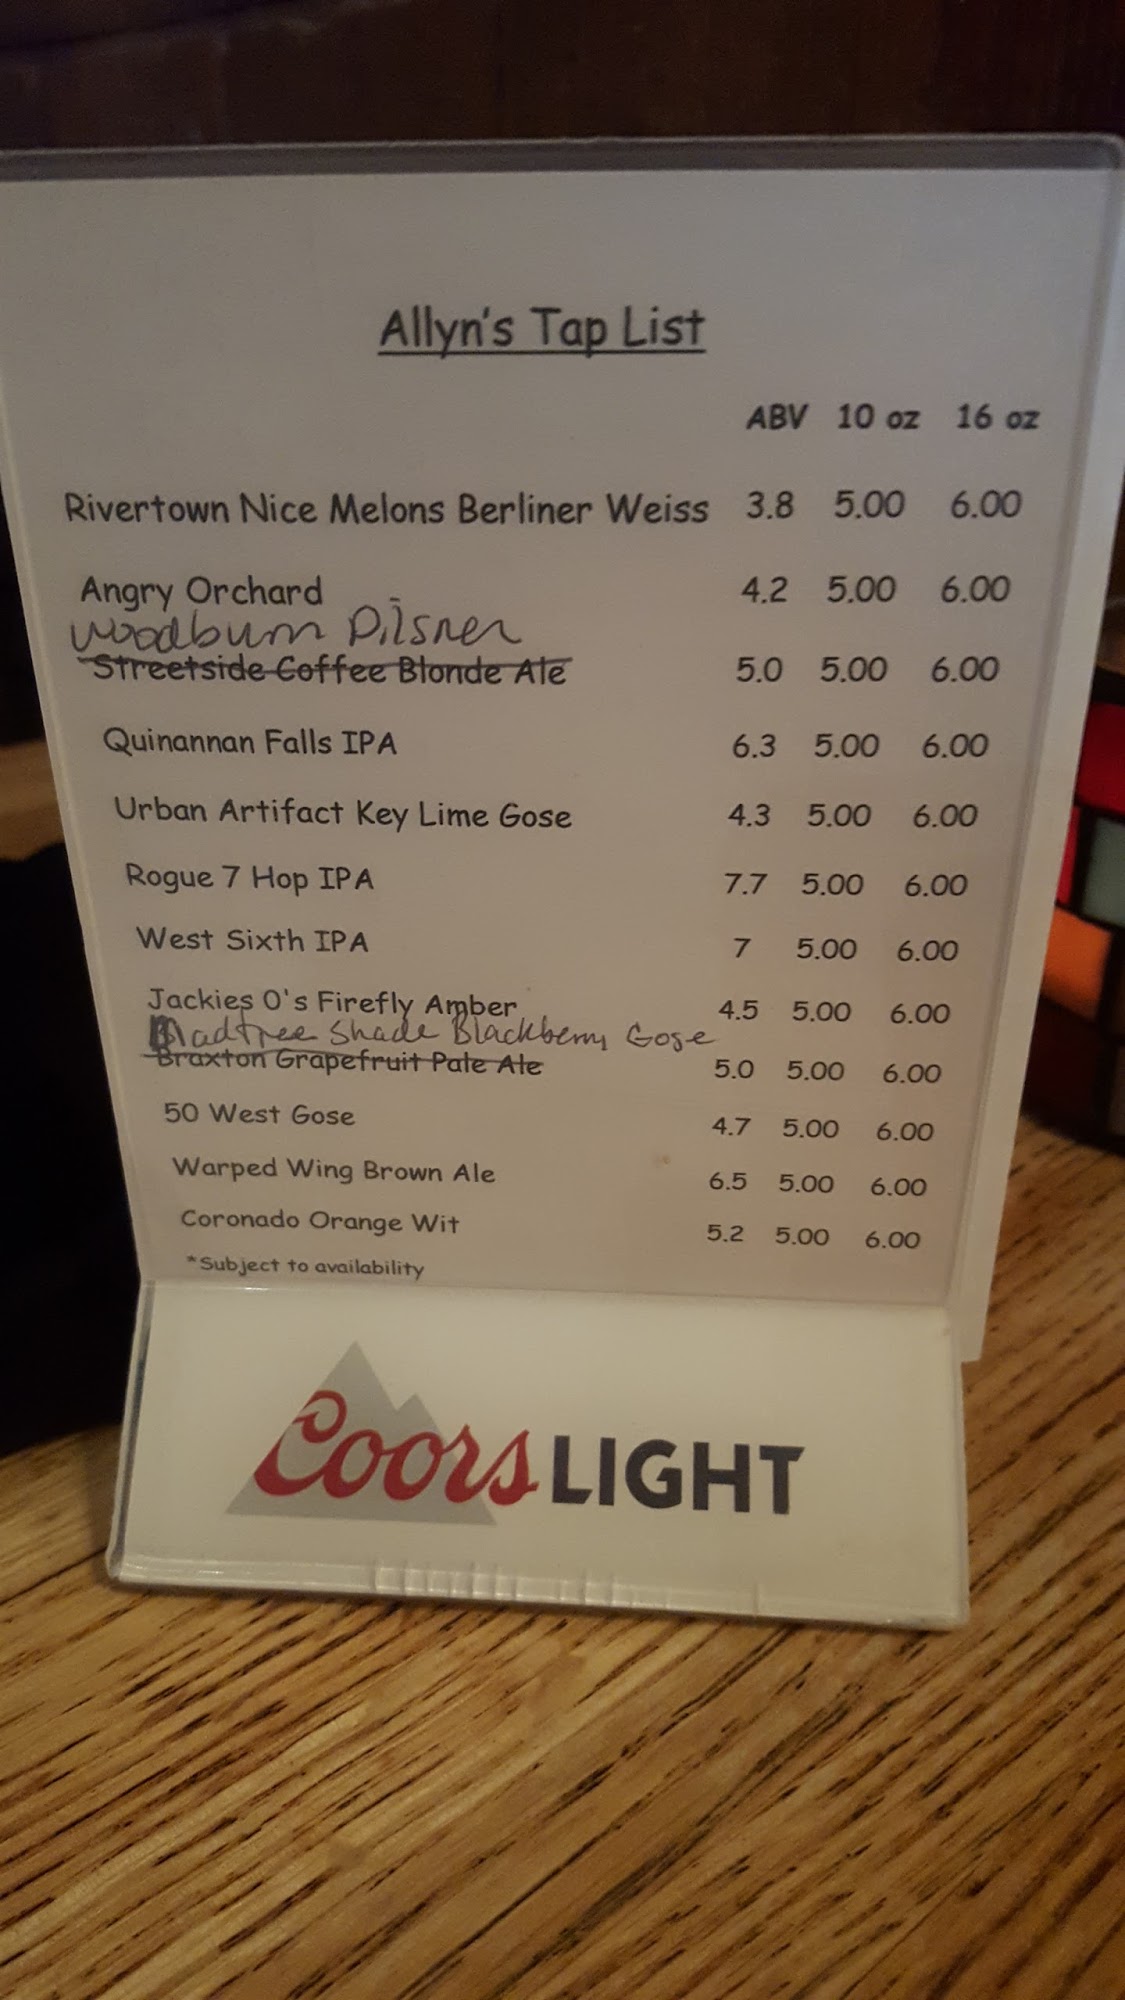 Allyn's Tap List
ABV 10 oz 16 oz
Rivertown Nice Melons Berliner Weiss 3.8 5.00 6.00
Angry Orchard 4.2 5.00 6.00
Woodburn Pilsner
Streetside Coffee Blonde Ale 5.0 5.00 6.00
Quinannan Falls IPA 6.3 5.00 6.00
Urban Artifact Key Lime Gose 4.3 5.00 6.00
Rogue 7 Hop IPA 7.7 5.00 6.00
West Sixth IPA 7 5.00 6.00
Jackies O's Firefly Amber 4.5 5.00 6.00
Madtree Shade Blackberry Gose
Braxton Grapefruit Pale Ale 5.0 5.00 6.00
50 West Gose 4.7 5.00 6.00
Warped Wing Brown Ale 6.5 5.00 6.00
Coronado Orange Wit 5.2 5.00 6.00
*Subject to availability
Coors LIGHT